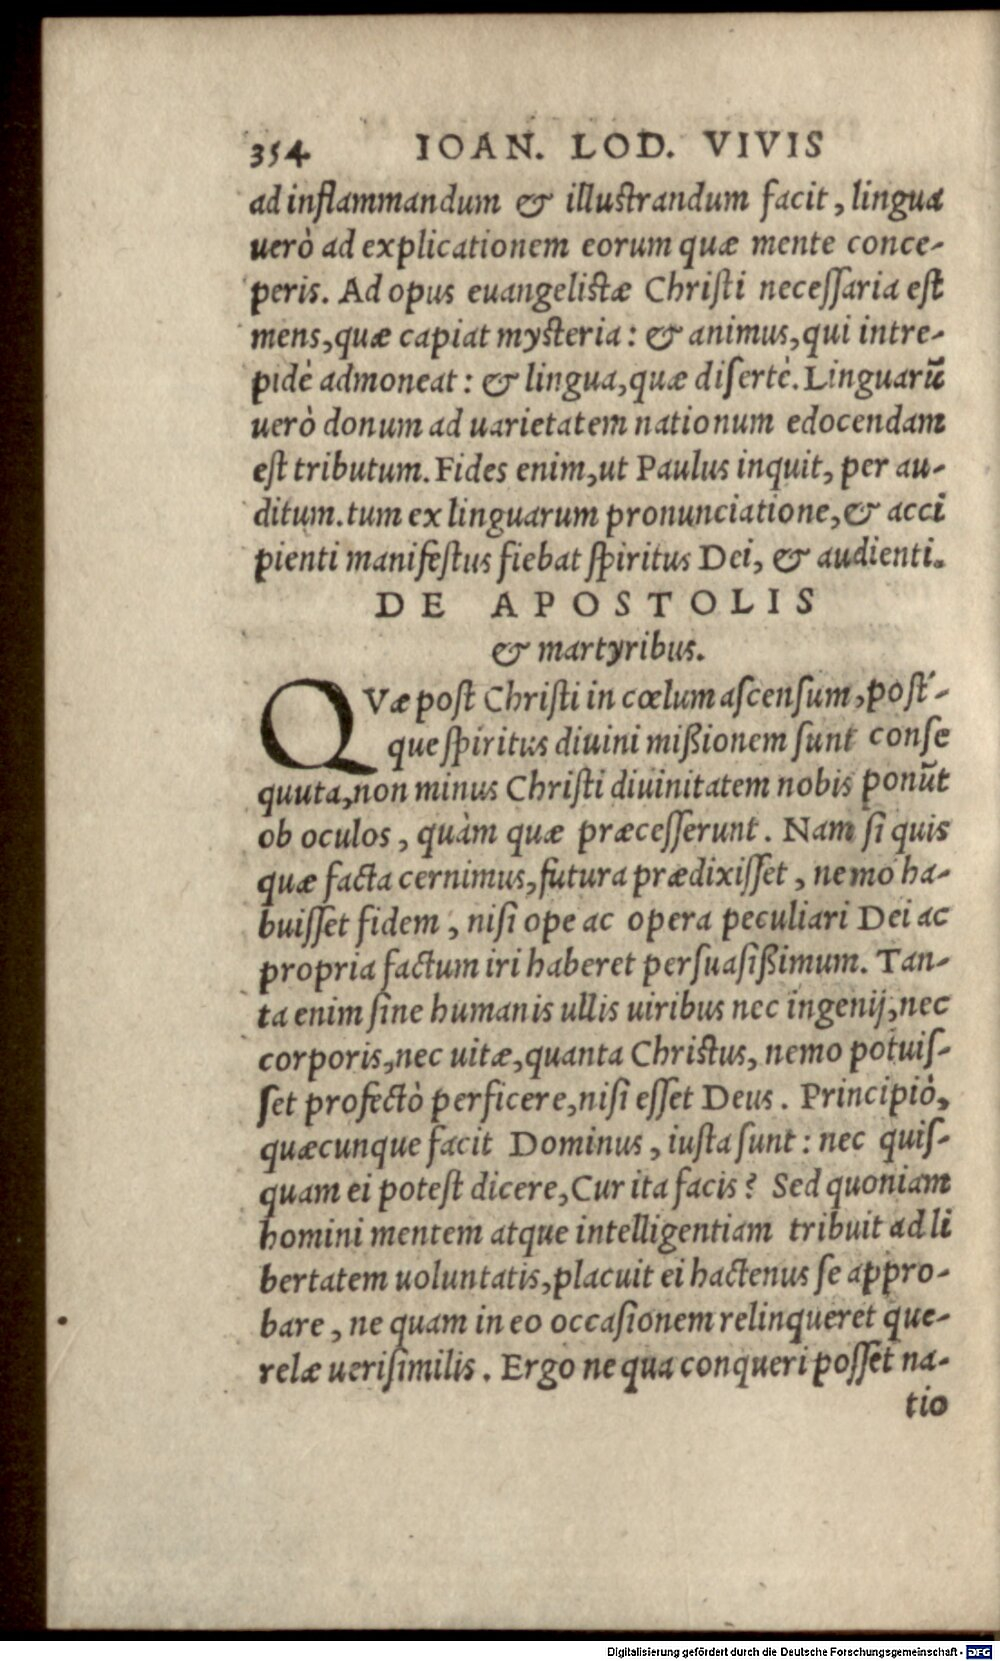 354 IOAN. LOD. VIVIS
ad inflammandum & illustrandum facit, lingua
uerò ad explicationem eorum quæ mente conce-
peris. Ad opus euangelistæ Christi necessaria est
mens, quæ capiat mysteria: & animus, qui intre-
pidè admoneat: & lingua, quæ disertè. Linguarū
uerò donum ad uarietatem nationum edocendam
est tributum. Fides enim, ut Paulus inquit, per au-
ditum. tum ex linguarum pronunciatione, & acci
pienti manifestus fiebat spiritus Dei, & audienti.
DE APOSTOLIS
& martyribus.
QVæ post Christi in cœlum ascensum, post-
que spiritus diuini mißionem sunt conse
quuta, non minus Christi diuinitatem nobis ponūt
ob oculos, quàm quæ præcesserunt. Nam si quis
quæ facta cernimus, futura prædixisset, nemo ha-
buisset fidem, nisi ope ac opera peculiari Dei ac
propria factum iri haberet persuasißimum. Tan-
ta enim sine humanis ullis uiribus nec ingenij, nec
corporis, nec uitæ, quanta Christus, nemo potuis-
set profectò perficere, nisi esset Deus. Principiò,
quæcunque facit Dominus, iusta sunt: nec quis-
quam ei potest dicere, Cur ita facis? Sed quoniam
homini mentem atque intelligentiam tribuit ad li
bertatem uoluntatis, placuit ei hactenus se appro-
bare, ne quam in eo occasionem relinqueret que-
relæ uerisimilis. Ergo ne qua conqueri posset na-
tio
Digitalisierung gefördert durch die Deutsche Forschungsgemeinschaft - DFG